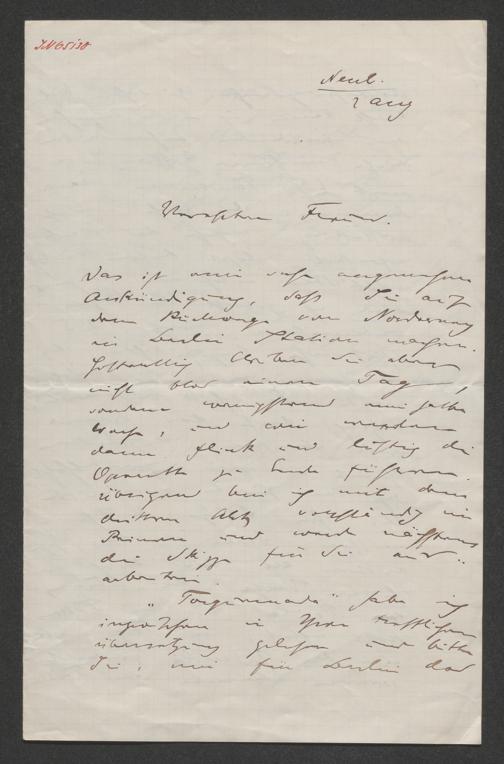 IN 65130
Neub.
2 Aug
Verehrter Freund.
Das ist eine sehr angenehme
Ankündigung, daß Sie auf
dem Rückwege von Norderney
in Berlin Station machen.
Hoffentlich bleiben Sie aber
nicht blos einen Tag,
sondern wenigstens eine halbe
Woche, und wir werden
dann flink und lustig die
Operette zu Ende führen.
Übrigens bin ich mit dem
dritten Akt vollständig im
Reinen und werde nächstens
die Skizze für Sie aus-
arbeiten.
"Torquemada" habe ich
inzwischen in Ihrer trefflichen
Übersetzung gelesen und bitte
Sie, mir für Berlin das